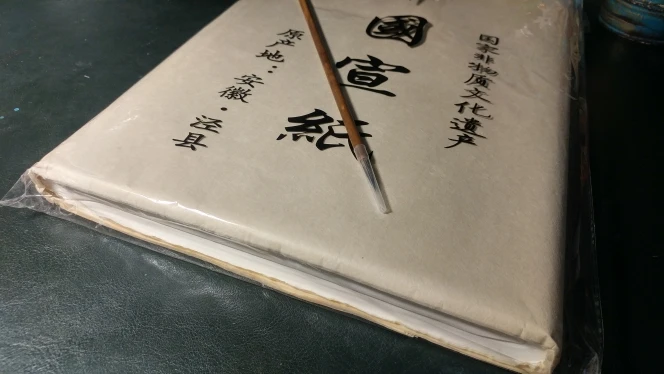 国家非物质文化遗产
國宣紙
原产地：安徽·泾县